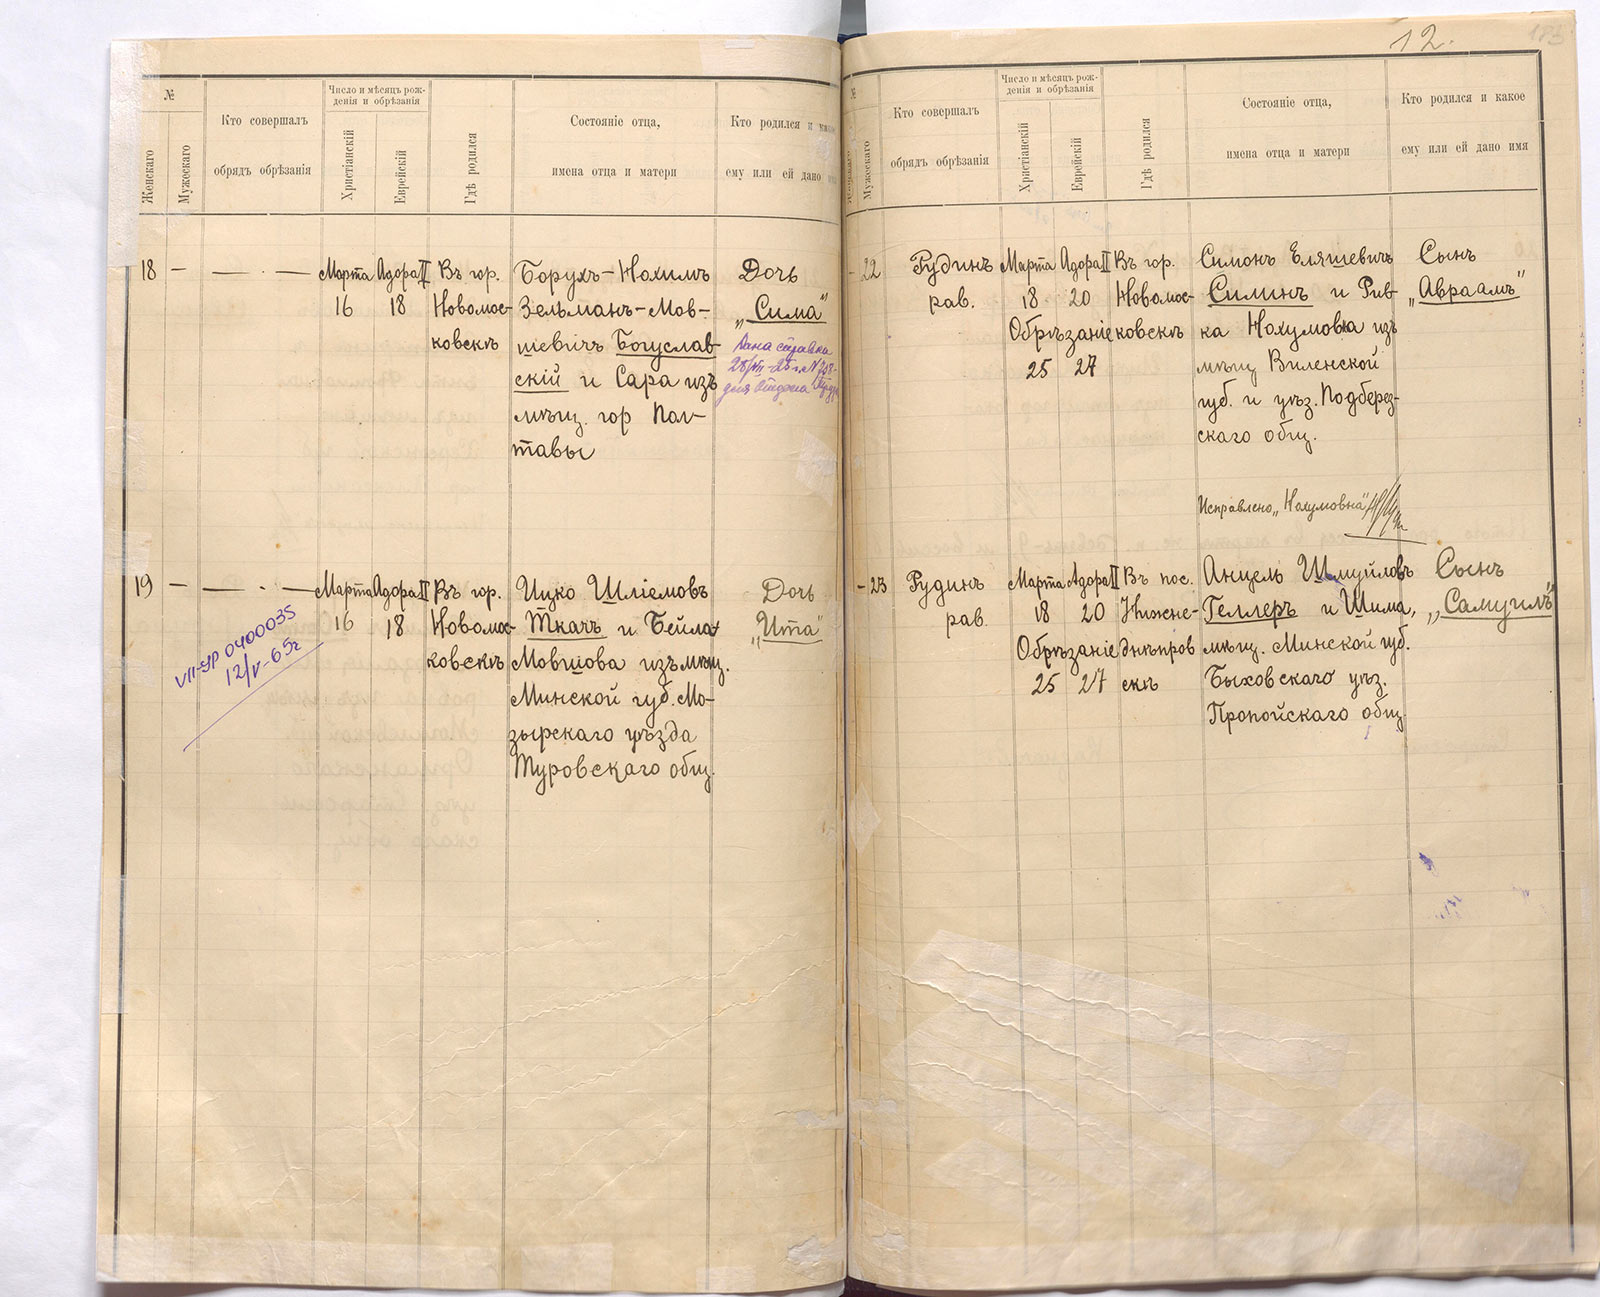 12.
183
№
Женскаго
Мужескаго
Кто совершалъ
обрядъ обрѣзанія
Число и мѣсяцъ рож-
денія и обрѣзанія
Христіанскій
Еврейскій
Гдѣ родился
Состояніе отца,
имена отца и матери
Кто родился и
ему или ей дано
18 — — · — Марта Адора II Въ гор. Борухъ-Нохимъ Дочь
16 18 Новомос- Зельманъ-Мов- „Сима"
ковскъ шевичъ Богуслав-
скій и Сара изъ
мѣщ. гор Пол-
тавы
Дана справка
28/VII-25 г. №
для
19 — — · — Марта Адора II Въ гор. Ицко Шліемовъ Дочь
16 18 Новомос- Ткачъ и Бейла „Ита"
ковскъ Мовшова изъ мѣщ.
Минской губ. Мо-
зырскаго уѣзда
Туровскаго общ.
VII-УР 0400035
12/V-65г
№
Мужескаго
Кто совершалъ
обрядъ обрѣзанія
Число и мѣсяцъ рож-
денія и обрѣзанія
Христіанскій
Еврейскій
Гдѣ родился
Состояніе отца,
имена отца и матери
Кто родился и какое
ему или ей дано имя
- 22 Рудинъ Марта Адора II Въ гор. Симонъ Еляшевичъ Сынъ
рав. 18 20 Новомос- Силинъ и Рив- „Авраамъ"
Обрѣзаніе ковскъ ка Нохумовна изъ
25 27 мѣщ Виленской
губ. и уѣз. Подберез-
скаго общ.
Исправлено „Нохумовна"
- 23 Рудинъ Марта Адора II Въ пос. Анцель Шмуйловъ Сынъ
рав. 18 20 Нижне- Геллеръ и Шима, „Самуилъ"
Обрѣзаніе днѣпров мѣщ. Минской губ.
25 27 скъ Быховскаго уѣз.
Пропойскаго общ